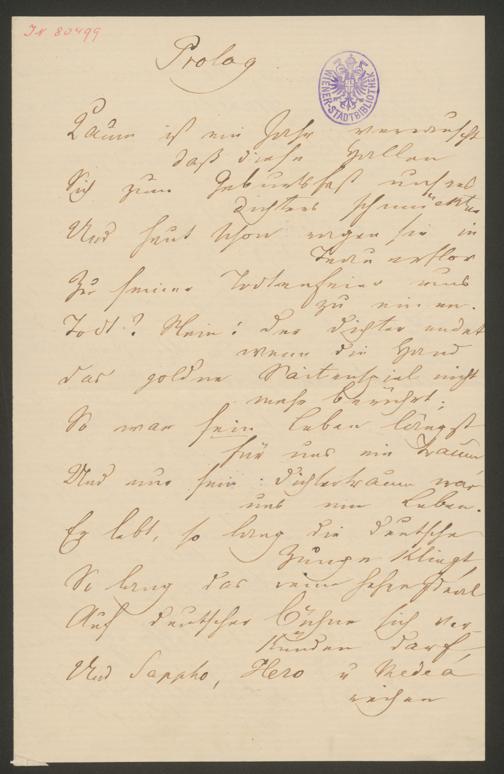 IN 80499
Prolog
WIENER-STADTBIBLIOTHEK
Kaum ist ein Jahr verrauscht
daß diese Hallen
Sich zum Geburtsfest unsres
Dichters schmückten
Und heut schon ragen sie in
Trauerflor
Zur seiner Todtenfeier uns
zu einen.
Todt? Nein! Der Dichter endet
wenn die Hand
das goldne Saitenspiel nicht
mehr berührt;
So war sein Leben längst
für uns ein Traum
Und nur sein Dichtertraum war
uns ein Leben.
Er lebt, so lang die deutsche
Zunge klingt,
So lang das reine hehre Ideal
Auf deutscher Bühne sich ver-
künden darf,
Und Sappho, Hero u Medea